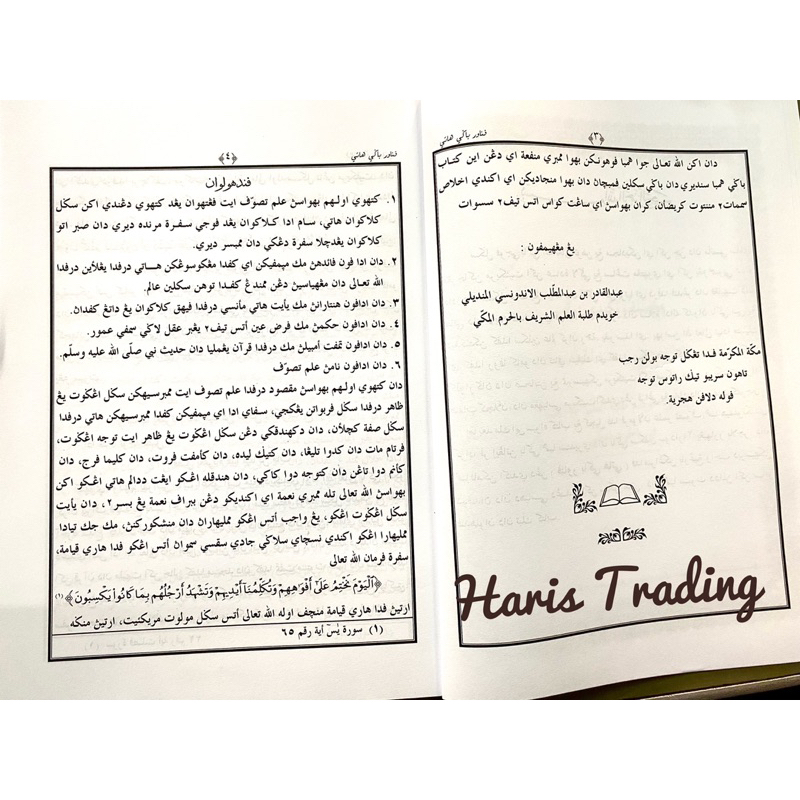 ﴿٣﴾ فناور باݢي هاتي
دان اكن الله تعالى جوا همبا فوهونكن بهوا ممبري منفعة اي دڠن اين كتاب
باݢي همبا سنديري دان باݢي سكلين فمباچان دان بهوا منجاديكن اي اكندي اخلاص
سمات٢ منتوت كريضان، كران بهواسڽ اي ساڠت كواس اتس تيف٢ سسوات
يڠ مڠهيمفون :
عبدالقادر بن عبدالمطّلب الاندونسي المنديلي
خويدم طلبة العلم الشريف بالحرم المكّي
مكّة المكرّمة فدا تڠݢل توجه بولن رجب
تاهون سريبو تيݢ راتوس توجه
فوله دلافن هجرية.
Haris Trading
﴿٤﴾ فناور باݢي هاتي
فندهولوان
١. كتهوي اولهم بهواسڽ علم تصوّف ايت فڠتهوان يڠد كتهوي دڠندي اكن سݢل
كلاكوان هاتي، سام ادا كلاكوان يڠد فوجي سفرة مرنده ديري دان صبر اتو
كلاكوان يڠدچلا سفرة دڠكي دان ممبسر ديري.
٢. دان ادا فون فائدهڽ مك مڽمفيكن اي كفدا مڠكوسوڠكن هاتي درفدا يڠلاين درفدا
الله تعالى دان مڠهياسيڽ دڠن ممندڠ كفدا توهن سكلين عالم.
٣. دان ادافون هنتارانڽ مك يأيت هاتي مأنسي درفدا فيهق كلاكوان يڠ داتڠ كفدان.
٤. دان ادافون حكمڽ مك فرض عين اتس تيف٢ يڠبر عقل لاݢي سمفي عمور.
٥. دان ادافون تمفت أمبيلڽ مك درفدا قرآن يڠمليا دان حديث نبي صلّى الله عليه وسلّم.
٦. دان ادافون نامڽ علم تصوّف
دان كتهوي اولهم بهواسڽ مقصود درفدا علم تصوف ايت ممبرسيهكن سݢل اڠݢوت يڠ
ظاهر درفدا سݢل فربواتن يڠكجي، سفاي ادا اي مڽمفيكن كفدا ممبرسيهكن هاتي درفدا
سݢل صفة كچلأن، دان دكهندقكي دڠن سݢل اڠݢوت يڠ ظاهر ايت توجه اڠݢوت،
فرتام مات دان كدوا تليڠا، دان كتيݢ ليده، دان كأمفت فروت، دان كليما فرج، دان
كأنم دوا تاڠن دان كتوجه دوا كاكي، دان هندقله اڠكو ايڠت ددالم هاتي اڠكو اكن
بهواسڽ الله تعالى تله ممبري نعمة اي اكنديكو دڠن ببراف نعمة يڠ بسر٢، دان يأيت
سݢل اڠݢوت اڠكو، يڠ واجب أتس اڠكو ممليهاران دان منشكوركنڽ، مك جك تيادا
ممليهارا اڠكو اكندي نسچاي سلاݢي جادي سقسي سموان أتس اڠكو فدا هاري قيامة،
سفرة فرمان الله تعالى
﴿ٱلْيَوْمَ نَخْتِمُ عَلَىٰٓ أَفْوَٰهِهِمْ وَتُكَلِّمُنَآ أَيْدِيهِمْ وَتَشْهَدُ أَرْجُلُهُم بِمَا كَانُوا۟ يَكْسِبُونَ﴾ (١)
ارتيڽ فدا هاري قيامة منچف اوله الله تعالى أتس سݢل مولوت مريكئيت، ارتيڽ منݢه
(١) سورة يٰسٓ أية رقم ٦٥